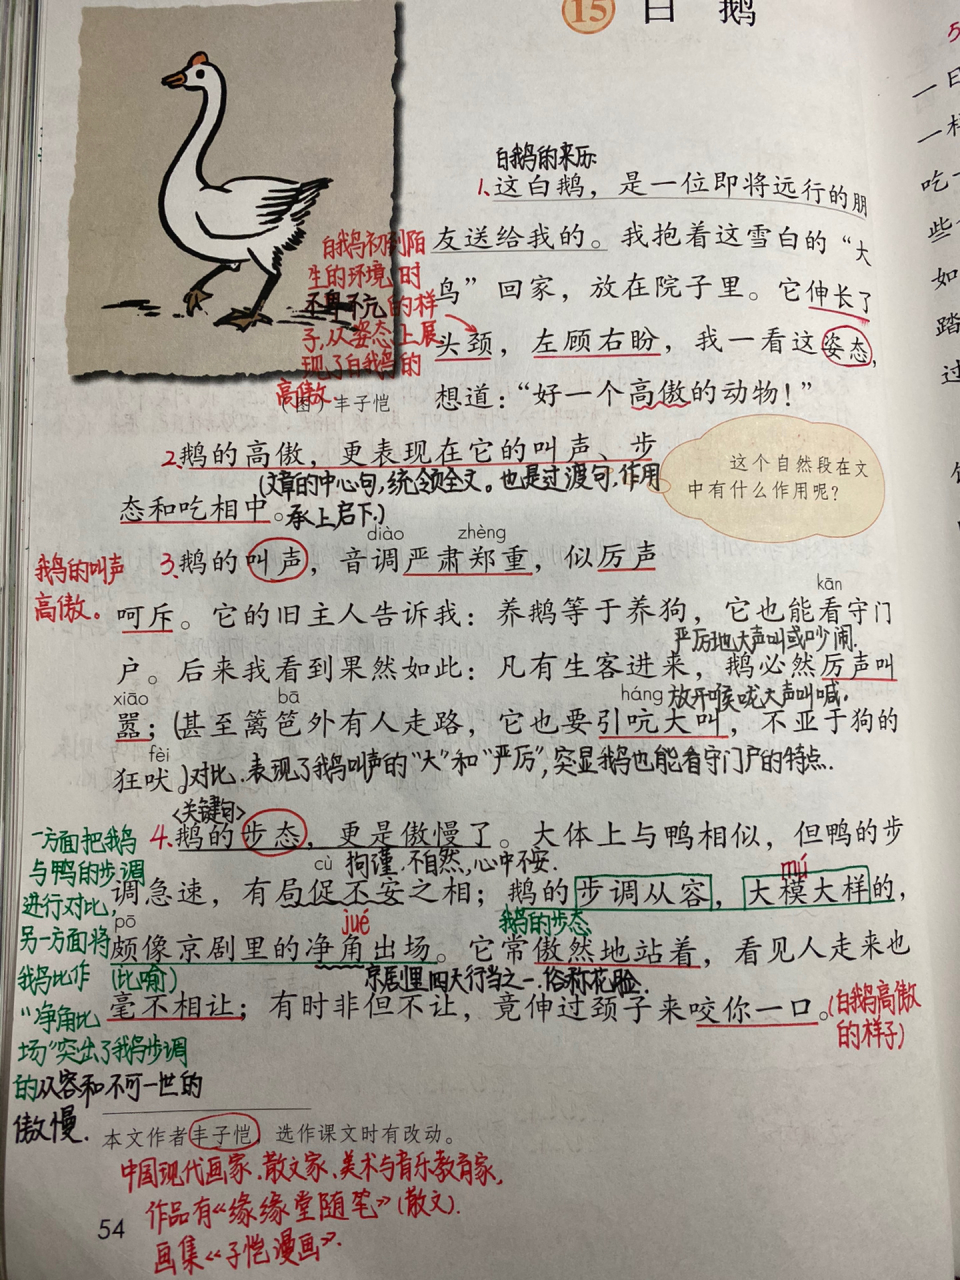 15 白 鹅
白鹅的来历
1.这白鹅，是一位即将远行的朋
友送给我的。我抱着这雪白的“大
鸟”回家，放在院子里。它伸长了
头颈，左顾右盼，我一看这姿态，
想道：“好一个高傲的动物！”
白我鸟初到陌
生的环境时
不卑不亢的样
子,从姿态上展
现了白我鸟的
高傲
（图）丰子恺
2.鹅的高傲，更表现在它的叫声、步
(文章的中心句,统领全文。也是过渡句,作用
态和吃相中。承上启下.)
这个自然段在文
中有什么作用呢？
diào zhèng
3.鹅的叫声，音调严肃郑重，似厉声
鹅的叫声
高傲。
kān
呵斥。它的旧主人告诉我：养鹅等于养狗，它也能看守门
严厉地大声叫或吵闹.
户。后来我看到果然如此：凡有生客进来，鹅必然厉声叫
xiāo bā háng 放开喉咙大声叫喊.
嚣；(甚至篱笆外有人走路，它也要引吭大叫，不亚于狗的
fèi
狂吠。)对比.表现了鹅叫声的“大”和“严厉”,突显鹅也能看守门户的特点.
<关键句>
4.鹅的步态，更是傲慢了。大体上与鸭相似，但鸭的步
cù 拘谨.不自然,心中不安. mú
调急速，有局促不安之相；鹅的步调从容，大模大样的，
pō jué 鹅的步态
颇像京剧里的净角出场。它常傲然地站着，看见人走来也
(比喻) 京剧里四大行当之一.俗称花脸.
毫不相让；有时非但不让，竟伸过颈子来咬你一口。
(白鹅高傲
的样子)
一方面把鹅
与鸭的步调
进行对比,
另一方面将
鹅比作
“净角比
场”突出了鹅步调
的从容和不可一世的
傲慢.
本文作者丰子恺，选作课文时有改动。
中国现代画家、散文家、美术与音乐教育家,
作品有《缘缘堂随笔》(散文).
画集《子恺漫画》.
54
一
一样
吃
些
如
踏
过